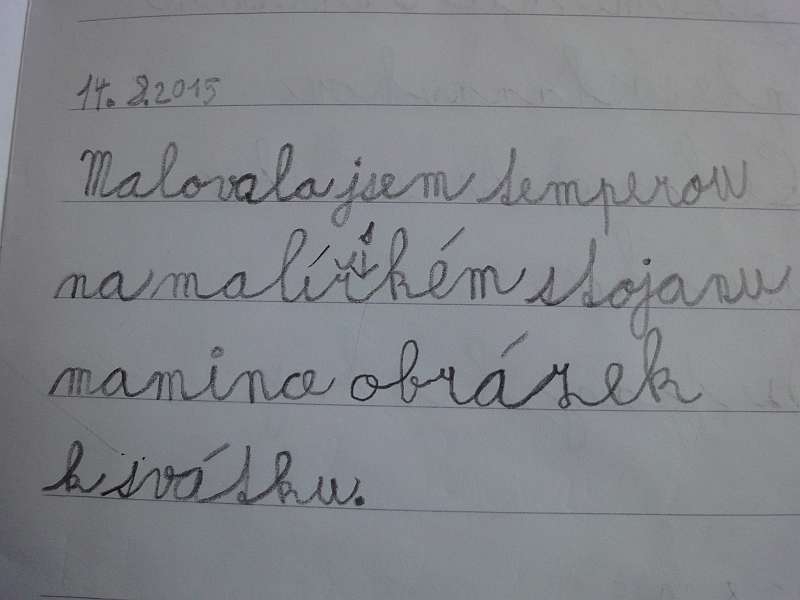 14. 2. 2015
Malovala jsem temperou
na malířském stojanu
mamince obrázek
k svátku.